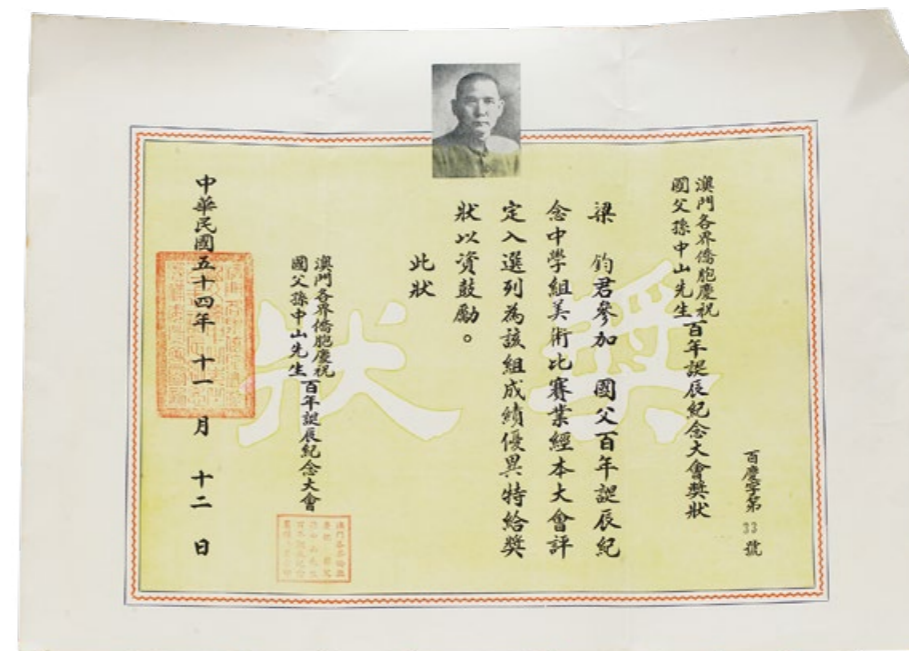 澳門各界僑胞慶祝
國父孫中山先生
百年誕辰紀念大會獎狀
百慶字第33號
梁 鈞君參加 國父百年誕辰紀
念中學組美術比賽業經本大會評
定入選列為該組成績優異特給獎
狀以資鼓勵。
此狀
澳門各界僑胞慶祝
國父孫中山先生
百年誕辰紀念大會
中華民國五十四年 十一 月 十二 日
獎狀